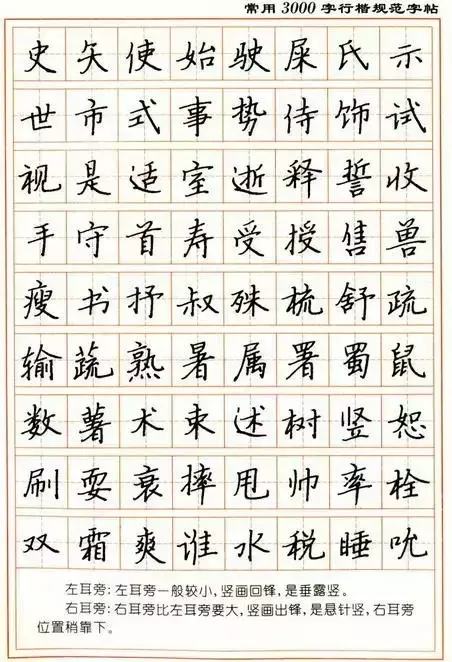 常用3000字行楷规范字帖
史矢使始驶屎氏示
世市式事势侍饰试
视是适室逝释誓收
手守首寿受授售兽
瘦书抒叔殊梳舒疏
输蔬熟暑属署蜀鼠
数薯术束述树竖恕
刷耍衰摔甩帅率栓
双霜爽谁水税睡吮
左耳旁:左耳旁一般较小,竖画回锋,是垂露竖。
右耳旁:右耳旁比左耳旁要大,竖画出锋,是悬针竖,右耳旁
位置稍靠下。